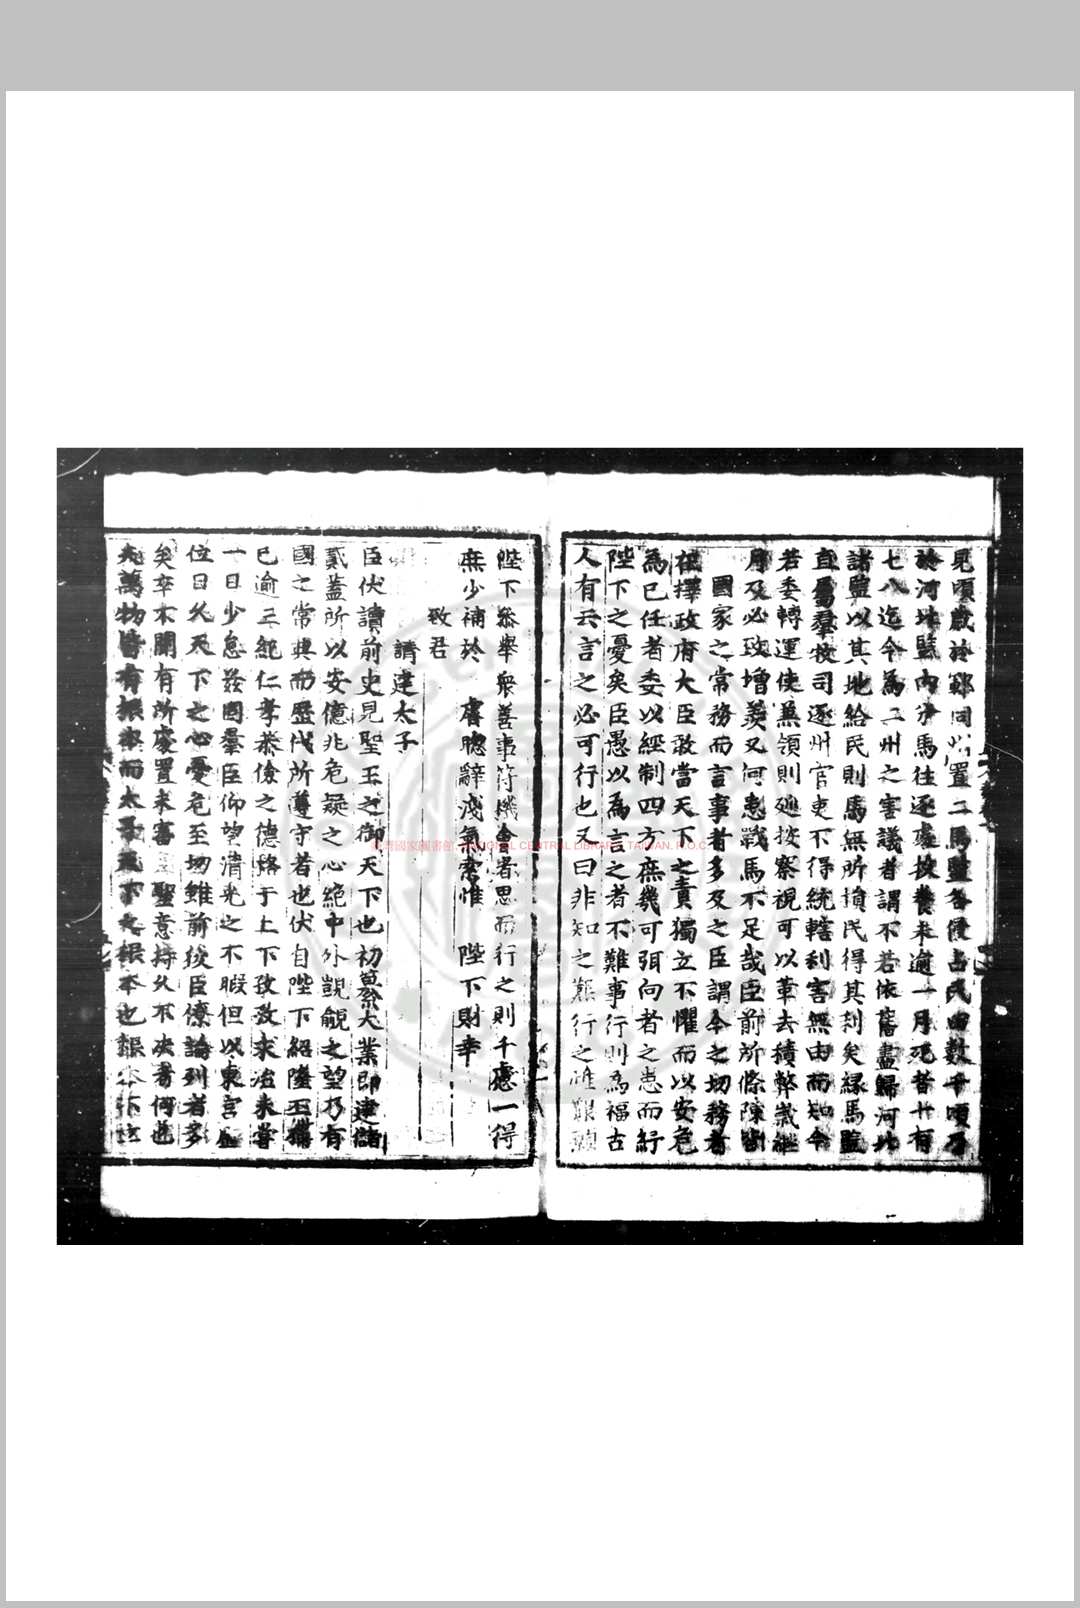 見頃歲於鄆同州置二馬監各侵占民田數千頃乃
於河北監內分馬往逐處放養未逾一月死者十有
七八迄今為二州之害議者謂不若依舊盡歸河北
諸監以其地給民則馬無所損民得其利矣緣馬監
直屬羣牧司逐州官吏不得統轄利害無由而知今
若委轉運使兼領則廵按察視可以革去積弊歲
月及必致增羨又何患戰馬不足哉臣前所條陳
國家之常務而言事者多及之臣謂今之切務者
在擇政府大臣敢當天下之責獨立不懼而以安危
為己任者委以經制四方庶幾可弭向者之患而紓
陛下之憂矣臣愚以為言之者不難事行則為福古
人有云言之必可行也又曰非知之難行之惟艱
陛下叅舉衆善事符機會者思而行之則千慮一得
庶少補於 膚聰辭淺氣索惟 陛下則幸
致君
請建太子
臣伏讀前史見聖王之御天下也初纂大業即建儲
貳蓋所以安億兆危疑之心絕中外覬覦之望乃有
國之常典而歷代所遵守者也伏自陛下紹隆丕構
已逾三紀仁孝恭儉之德格于上下孜孜求治未嘗
一日少怠茲固羣臣仰望清光之不暇但以東宮
位曰久天下之心憂危至切雖前後臣僚論列者多
矣卒不聞有所處置未審 聖意持久不決者何也
夫萬物皆有根本而太子天下之根本也根本不立
臺灣國家圖書館, NATIONAL CENTRAL LIBRARY, TAIWAN, R.O.C.